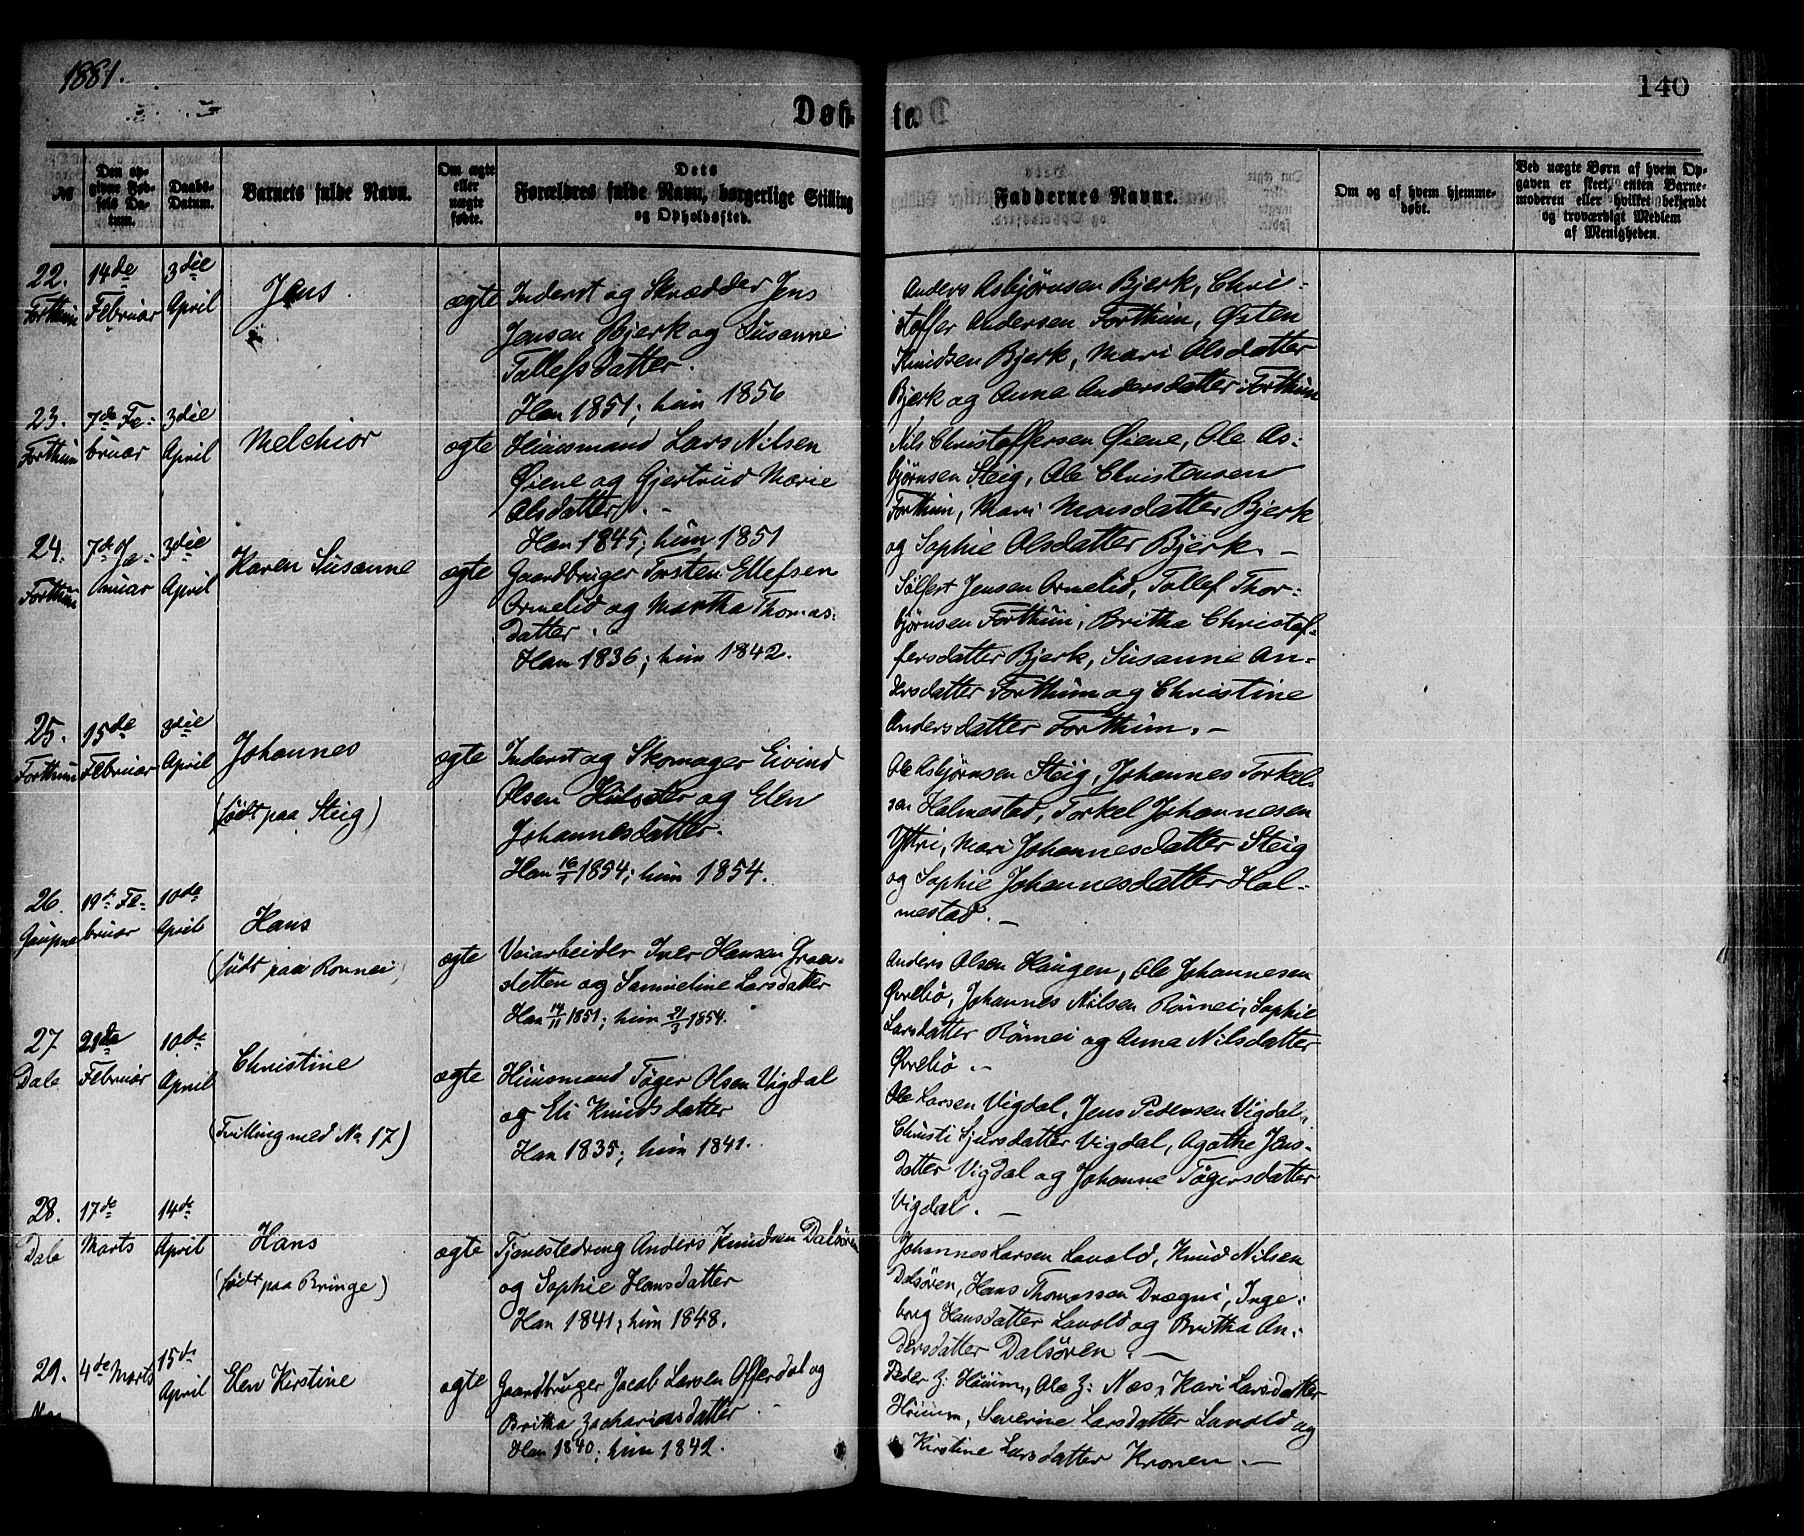 1881.
140
Døbte.
№
Den opgivne Fødsels Datum.
Daabs-Datum.
Barnets fulde Navn.
Om ægte eller uægte født.
Dets Forældres fulde Navn, borgerlige Stilling og Opholdssted.
Faddernes Navne.
Om og af hvem hjemmedøbt.
Ved uægte Børn af hvem Opgaven er skeet, enten Barnemoderen eller hvilket bekjendt og troværdigt Medlem af Menigheden.
22. Forthun
14de Februar
3die April
Jens
ægte
Inderst og Skrædder Jens
Jensen Bjerk og Susanne
Tollefsdatter.
Han 1851; hun 1856
Anders Asbjørnsen Bjerk, Chri-
stoffer Andersen Forthun, Østen
Knudsen Bjerk, Mari Olsdatter
Bjerk og Anna Andersdatter Forthun
23. Forthun
7de Februar
3die April
Melchior
ægte
Huusmand Lars Nilsen
Øiene og Gjertrud Marie
Olsdatter. -
Han 1845; hun 1851
Nils Christoffersen Øiene, Ole As-
bjørnsen Steig, Ole Christensen
Forthun, Mari Monsdatter Bjerk
og Sophie Olsdatter Bjerk. -
24. Forthun
7de Januar
3die April
Karen Susanne
ægte
Gaardbruger Torsten Ellefsen
Ormelid og Martha Thomas-
datter.
Han 1836; hun 1842.
Sølfert Jensen Ormelid, Tollef Thor-
bjørnsen Forthun, Britha Christof-
fersdatter Bjerk, Susanne An-
dersdatter Forthun og Christine
Andersdatter Forthun. -
25. Forthun
15de Februar
3die April
Johannes
(født paa Steig)
ægte
Inderst og Skomager Eivind
Olsen Hulsæter og Elen
Johannesdatter.
Han 1854; hun 1854.
Ole Asbjørnsen Steig, Johannes Torkel-
sen Halmestad, Torkel Johannesen
Yttri, Mari Johannesdatter Steig
og Sophie Johannesdatter Hal-
mestad. -
26. Gaupne
19de Februar
10de April
Hans
(født paa Rønnei)
ægte
Veiarbeider Iver Hansen Graa-
sletten og Samueline Larsdatter
Han 14/11 1851; hun 1854.
Anders Olsen Haugen, Ole Johannesen
Øvrebø, Johannes Nilsen Rønnei, Sophie
Larsdatter Rønnei og Anna Nilsdatter
Øvrebø. -
27 Dale
28de Februar
10de April
Christine
(Tvilling med No 17)
ægte
Huusmand Tøger Olsen Vigdal
og Eli Knudsdatter
Han 1835; hun 1841.
Ole Larsen Vigdal, Jens Pedersen Vigdal,
Christi Sjursdatter Vigdal, Agathe Jens-
datter Vigdal og Johanne Tøgersdatter
Vigdal. -
28. Dale
17de Marts
14de April
Hans
(født paa Bringe)
ægte
Tjenestedreng Anders Knudsen Dalsøren
og Sophie Hansdatter
Han 1841; hun 1848.
Johannes Larsen Lavold, Knud Nilsen
Dalsøren, Hans Thomassen Drægni, Inge-
borg Hansdatter Lavold og Britha An-
dersdatter Dalsøren. -
29.
4de Marts
15de April
Elen Kirstine
ægte
Gaardbruger Jacob Larsen Offerdal og
Britha Zachariasdatter. -
Han 1840; hun 1842.
Peder Z: Høium, Ole Z: Næs, Kari Larsdatter
Høium, Severine Larsdatter Lavold og
Kirstine Larsdatter Kronen. -